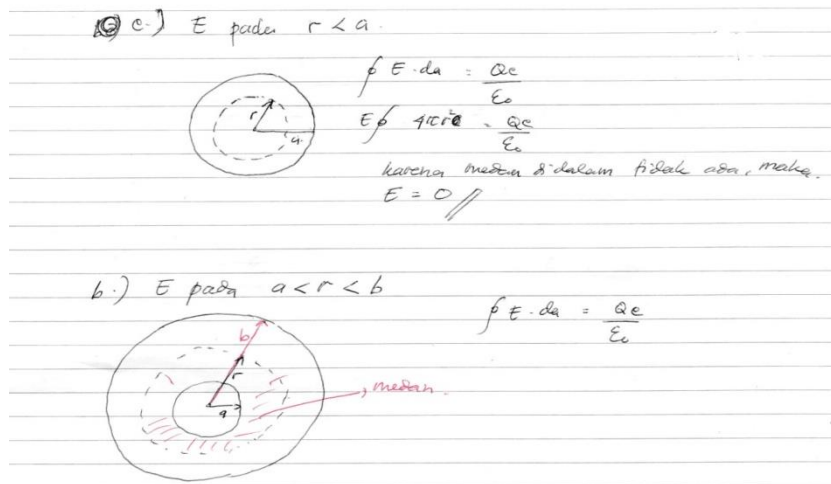 c.) E pada r < a.
∮ E·da = Qe/ε₀
E∮ 4πr² = Qe/ε₀
r
a
karena medan didalam tidak ada, maka.
E = 0 //
b.) E pada a < r < b
∮ E·da = Qe/ε₀
b
r
a
medan.